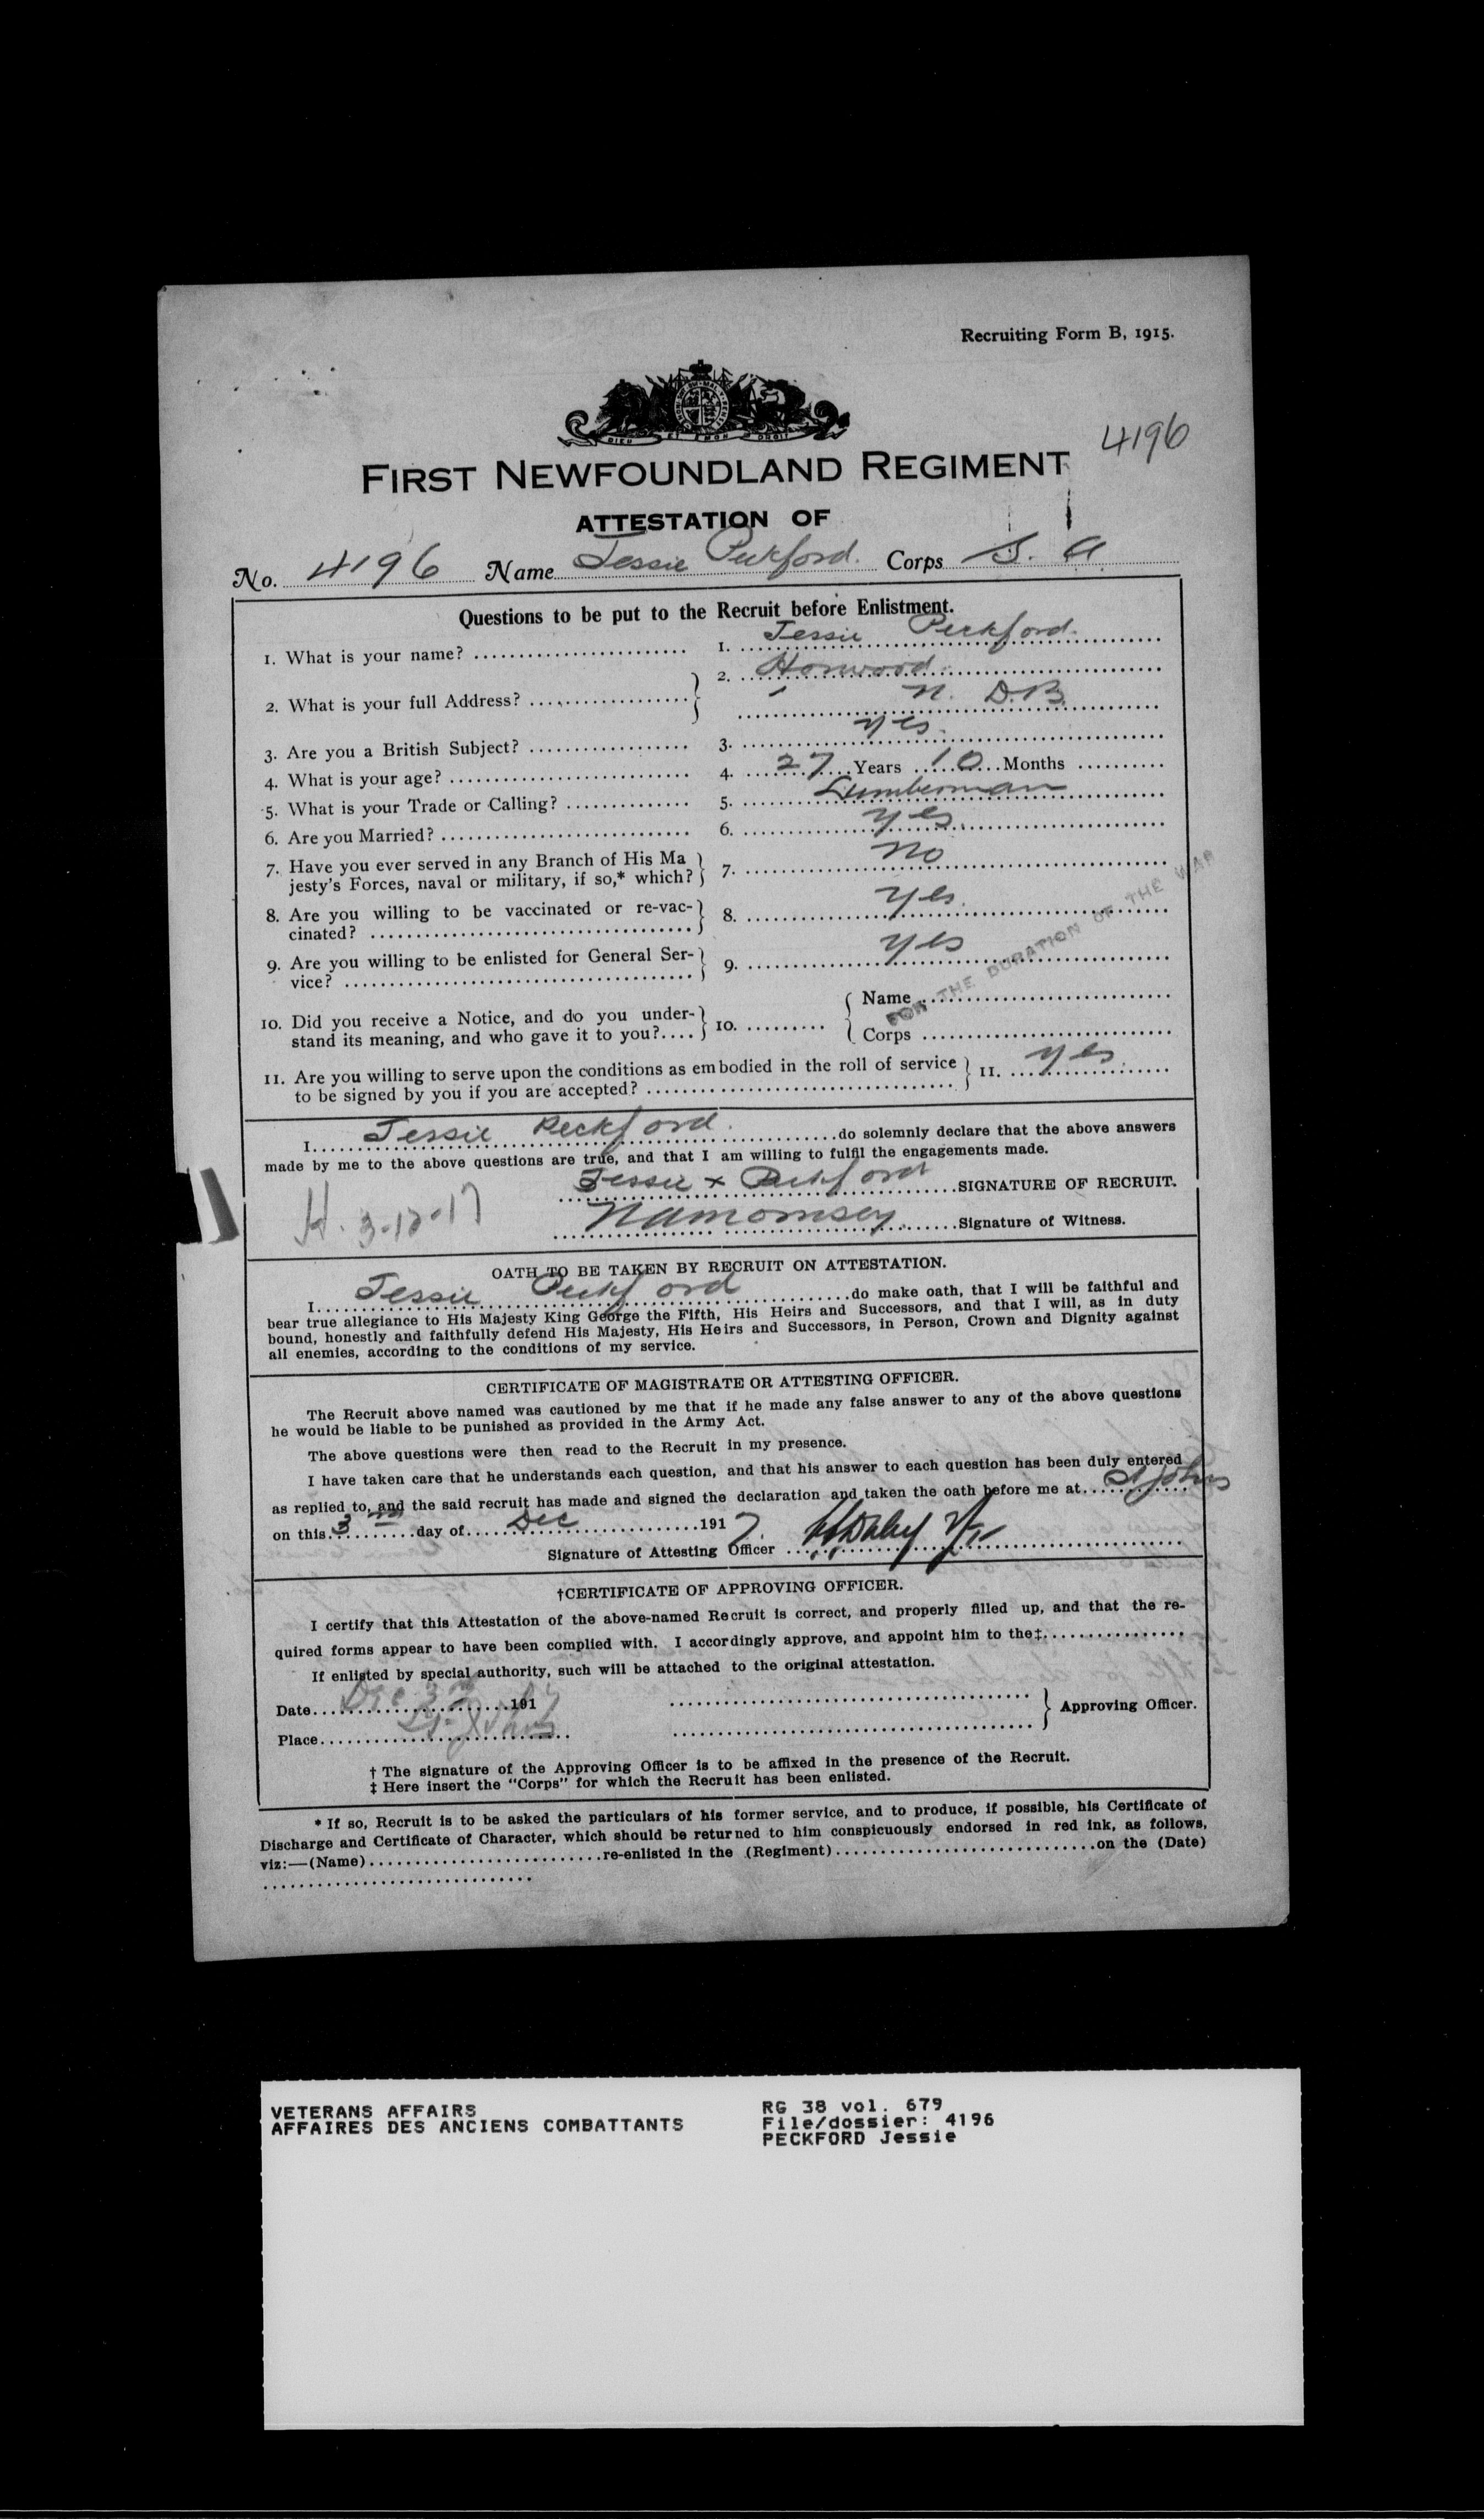 Recruiting Form B, 1915.
DIEU ET MON DROIT
4196
FIRST NEWFOUNDLAND REGIMENT
ATTESTATION OF
No. 4196 Name Jessie Peckford. Corps S. A.
Questions to be put to the Recruit before Enlistment.
1. What is your name? 1. Jessie Peckford.
2. What is your full Address? 2. Horwood
N. D.B.
3. Are you a British Subject? 3. Yes.
4. What is your age? 4. 27 Years 10 Months
5. What is your Trade or Calling? 5. Lumberman
6. Are you Married? 6. Yes.
7. Have you ever served in any Branch of His Ma
jesty's Forces, naval or military, if so,* which? 7. No
8. Are you willing to be vaccinated or re-vac-
cinated? 8. Yes.
9. Are you willing to be enlisted for General Ser-
vice? 9. Yes
FOR THE DURATION OF THE WAR
10. Did you receive a Notice, and do you under-
stand its meaning, and who gave it to you?.... 10. Name
Corps
11. Are you willing to serve upon the conditions as embodied in the roll of service
to be signed by you if you are accepted? 11. Yes.
I Jessie Peckford. do solemnly declare that the above answers
made by me to the above questions are true, and that I am willing to fulfil the engagements made.
Jessie x Peckford SIGNATURE OF RECRUIT.
H. 3-12-17
Signature of Witness.
OATH TO BE TAKEN BY RECRUIT ON ATTESTATION.
I Jessie Peckford do make oath, that I will be faithful and
bear true allegiance to His Majesty King George the Fifth, His Heirs and Successors, and that I will, as in duty
bound, honestly and faithfully defend His Majesty, His Heirs and Successors, in Person, Crown and Dignity against
all enemies, according to the conditions of my service.
CERTIFICATE OF MAGISTRATE OR ATTESTING OFFICER.
The Recruit above named was cautioned by me that if he made any false answer to any of the above questions
he would be liable to be punished as provided in the Army Act.
The above questions were then read to the Recruit in my presence.
I have taken care that he understands each question, and that his answer to each question has been duly entered
as replied to, and the said recruit has made and signed the declaration and taken the oath before me at St Johns
on this 3rd day of Dec 1917.
Signature of Attesting Officer
†CERTIFICATE OF APPROVING OFFICER.
I certify that this Attestation of the above-named Recruit is correct, and properly filled up, and that the re-
quired forms appear to have been complied with. I accordingly approve, and appoint him to the‡
If enlisted by special authority, such will be attached to the original attestation.
Date Dec 3rd 1917
Approving Officer.
Place St. Johns
† The signature of the Approving Officer is to be affixed in the presence of the Recruit.
‡ Here insert the "Corps" for which the Recruit has been enlisted.
* If so, Recruit is to be asked the particulars of his former service, and to produce, if possible, his Certificate of
Discharge and Certificate of Character, which should be returned to him conspicuously endorsed in red ink, as follows,
viz:—(Name) re-enlisted in the (Regiment) on the (Date)
VETERANS AFFAIRS
AFFAIRES DES ANCIENS COMBATTANTS
RG 38 vol. 679
File/dossier: 4196
PECKFORD Jessie